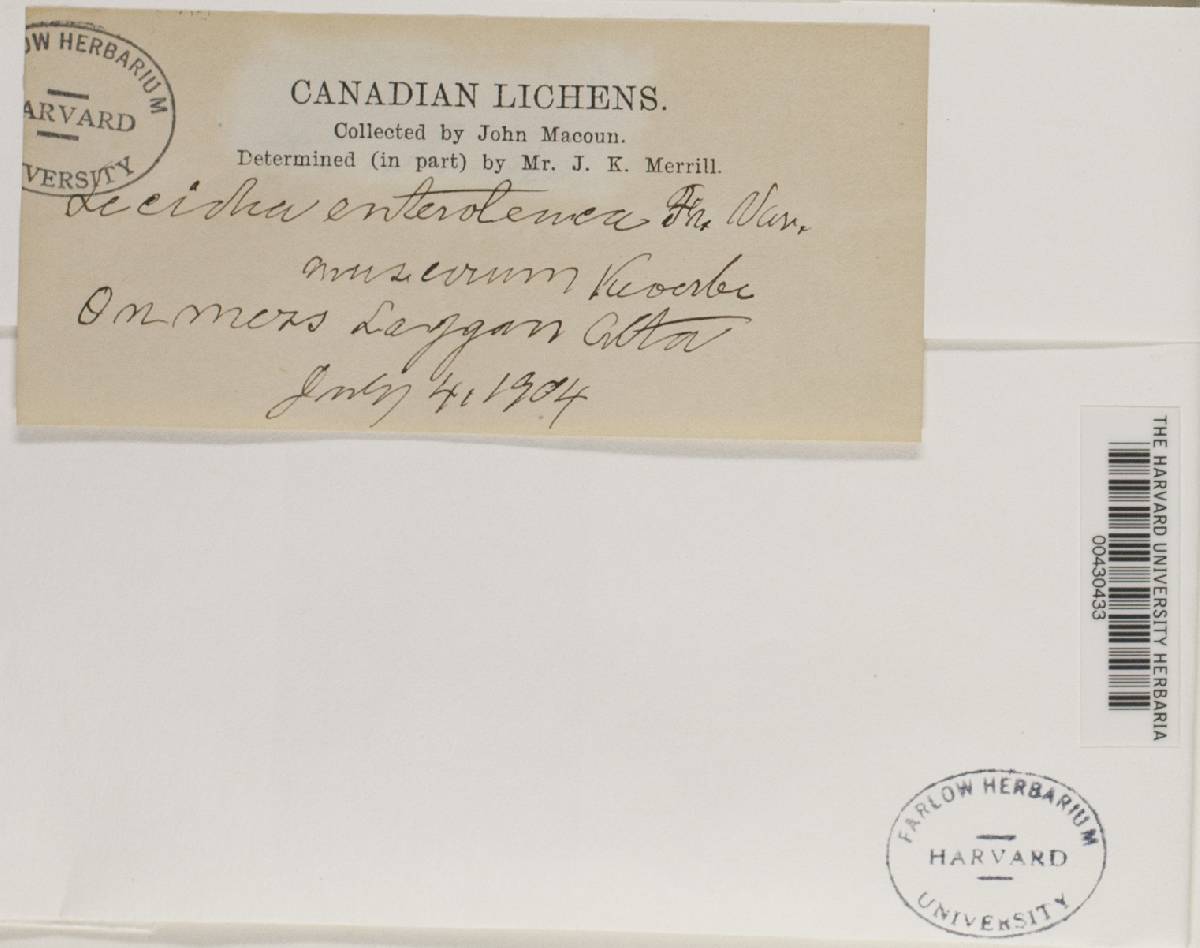 OW HERBARIUM
ARVARD
VERSITY
CANADIAN LICHENS.
Collected by John Macoun.
Determined (in part) by Mr. J. K. Merrill.
Lecidea enteroleuca Fr. Var.
muscorum Koerbe
On moss Laggan Alta
July 4, 1904
THE HARVARD UNIVERSITY HERBARIA
00430433
FARLOW HERBARIUM
HARVARD
UNIVERSITY